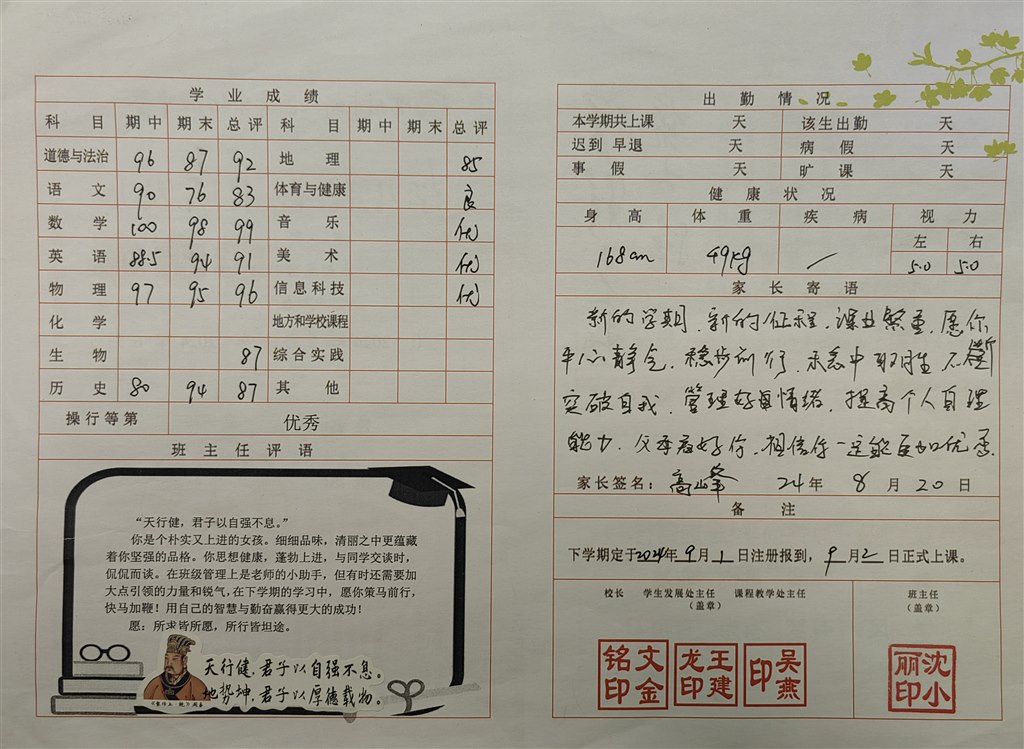 学业成绩
科目 期中 期末 总评 科目 期中 期末 总评
道德与法治 96 87 92 地理 85
语文 90 76 83 体育与健康 良
数学 100 98 99 音乐 优
英语 88.5 94 91 美术 优
物理 97 95 96 信息科技 优
化学 地方和学校课程
生物 87 综合实践
历史 80 94 87 其他
操行等第 优秀
班主任评语
“天行健，君子以自强不息。”
你是个朴实又上进的女孩。细细品味，清丽之中更蕴藏
着你坚强的品格。你思想健康，蓬勃上进，与同学交谈时，
侃侃而谈。在班级管理上是老师的小助手，但有时还需要加
大点引领的力量和锐气,在下学期的学习中，愿你策马前行，
快马加鞭！用自己的智慧与勤奋赢得更大的成功！
愿：所求皆所愿，所行皆坦途。
天行健，君子以自强不息。
地势坤，君子以厚德载物。
出勤情况
本学期共上课 天 该生出勤 天
迟到 早退 天 病假 天
事假 天 旷课 天
健康状况
身高 体重 疾病 视力
左 右
168cm 49kg / 5.0 5.0
家长寄语
新的学期，新的征程，课业繁重，愿你
平心静气，稳步前行，不断
突破自我，管理好自己情绪，提高个人自理
能力，父母看好你，相信你一定能更加优秀.
家长签名：高山峰 24年 8月20日
备注
下学期定于2024年9月1日注册报到，9月2日正式上课。
校长 学生发展处主任 课程教学处主任 班主任
（盖章） （盖章）
文金铭印 王建龙印 吴燕印 沈小丽印